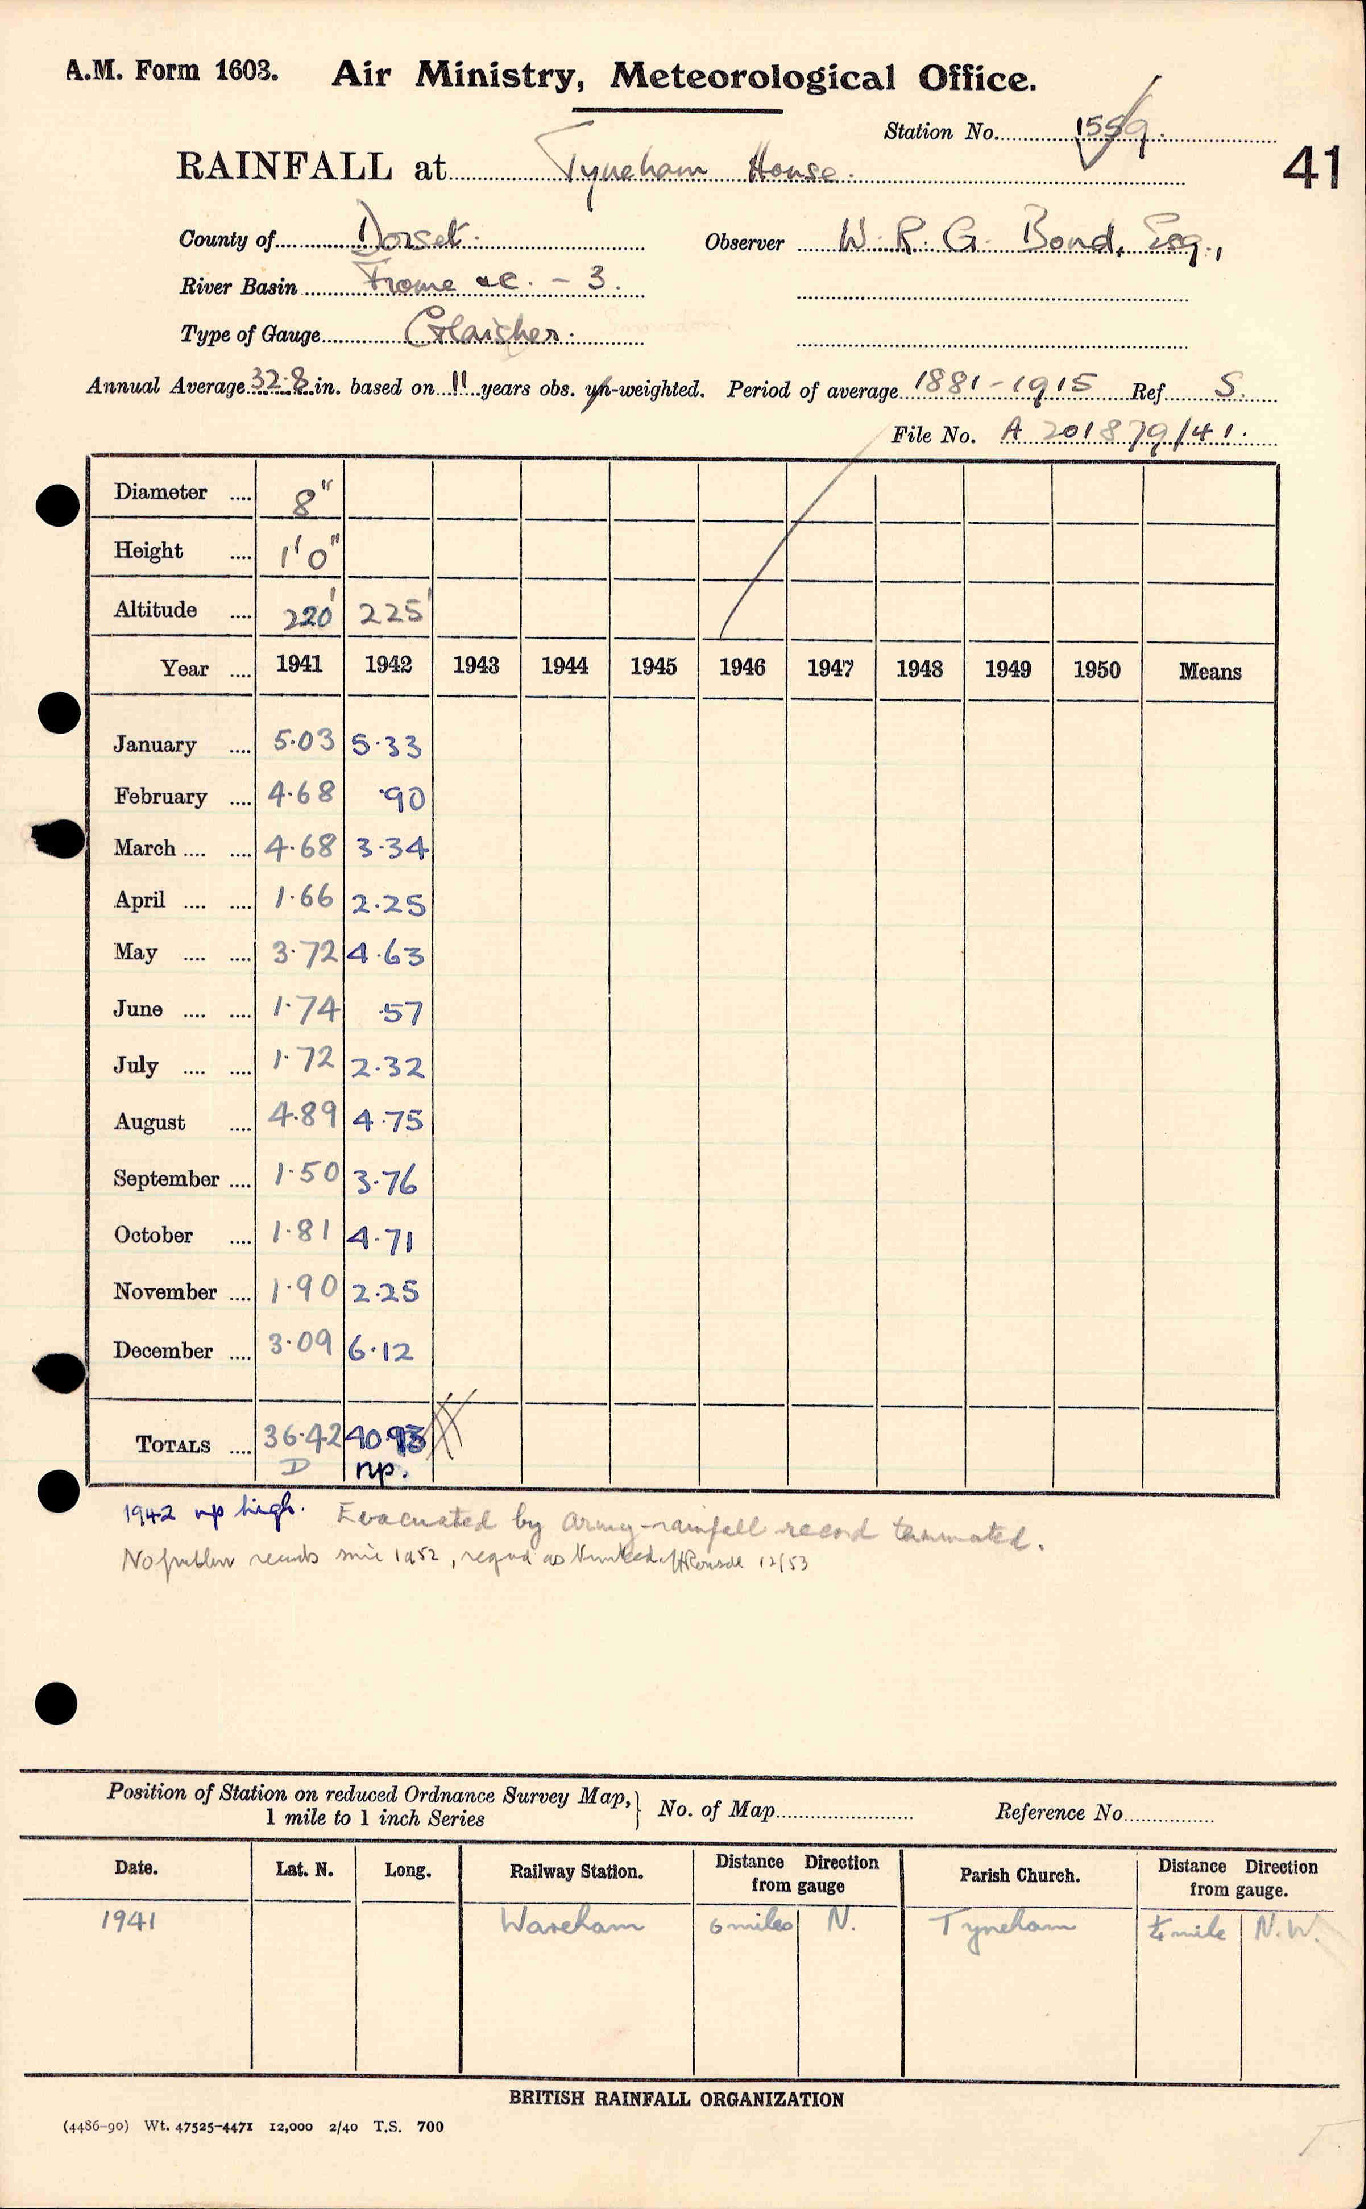 A.M. Form 1603. Air Ministry, Meteorological Office.
Station No. 1559.
41
RAINFALL at Tyneham House.
County of Dorset. Observer W. R. G. Bond, Esq.,
River Basin Frome &c. - 3.
Type of Gauge Glaisher.
Annual Average 32.8 in. based on 11 years obs. un-weighted. Period of average 1881-1915 Ref S.
File No. A 201879/41.
Diameter .... 8"
Height .... 1'0"
Altitude .... 220' 225'
Year .... 1941 1942 1943 1944 1945 1946 1947 1948 1949 1950 Means
January .... 5.03 5.33
February .... 4.68 .90
March .... .... 4.68 3.34
April .... .... 1.66 2.25
May .... .... 3.72 4.63
June .... .... 1.74 .57
July .... .... 1.72 2.32
August .... 4.89 4.75
September .... 1.50 3.76
October .... 1.81 4.71
November .... 1.90 2.25
December .... 3.09 6.12
TOTALS .... 36.42 40.93
D np.
1942 np high. Evacuated by army-rainfall record terminated.
No records since 1952, as 12/53
Position of Station on reduced Ordnance Survey Map, } No. of Map Reference No
1 mile to 1 inch Series
Date. Lat. N. Long. Railway Station. Distance Direction from gauge Parish Church. Distance Direction from gauge.
1941 Wareham 6 miles N. Tyneham ¼ mile N.W.
BRITISH RAINFALL ORGANIZATION
(4486-90) Wt. 47525-4471 12,000 2/40 T.S. 700